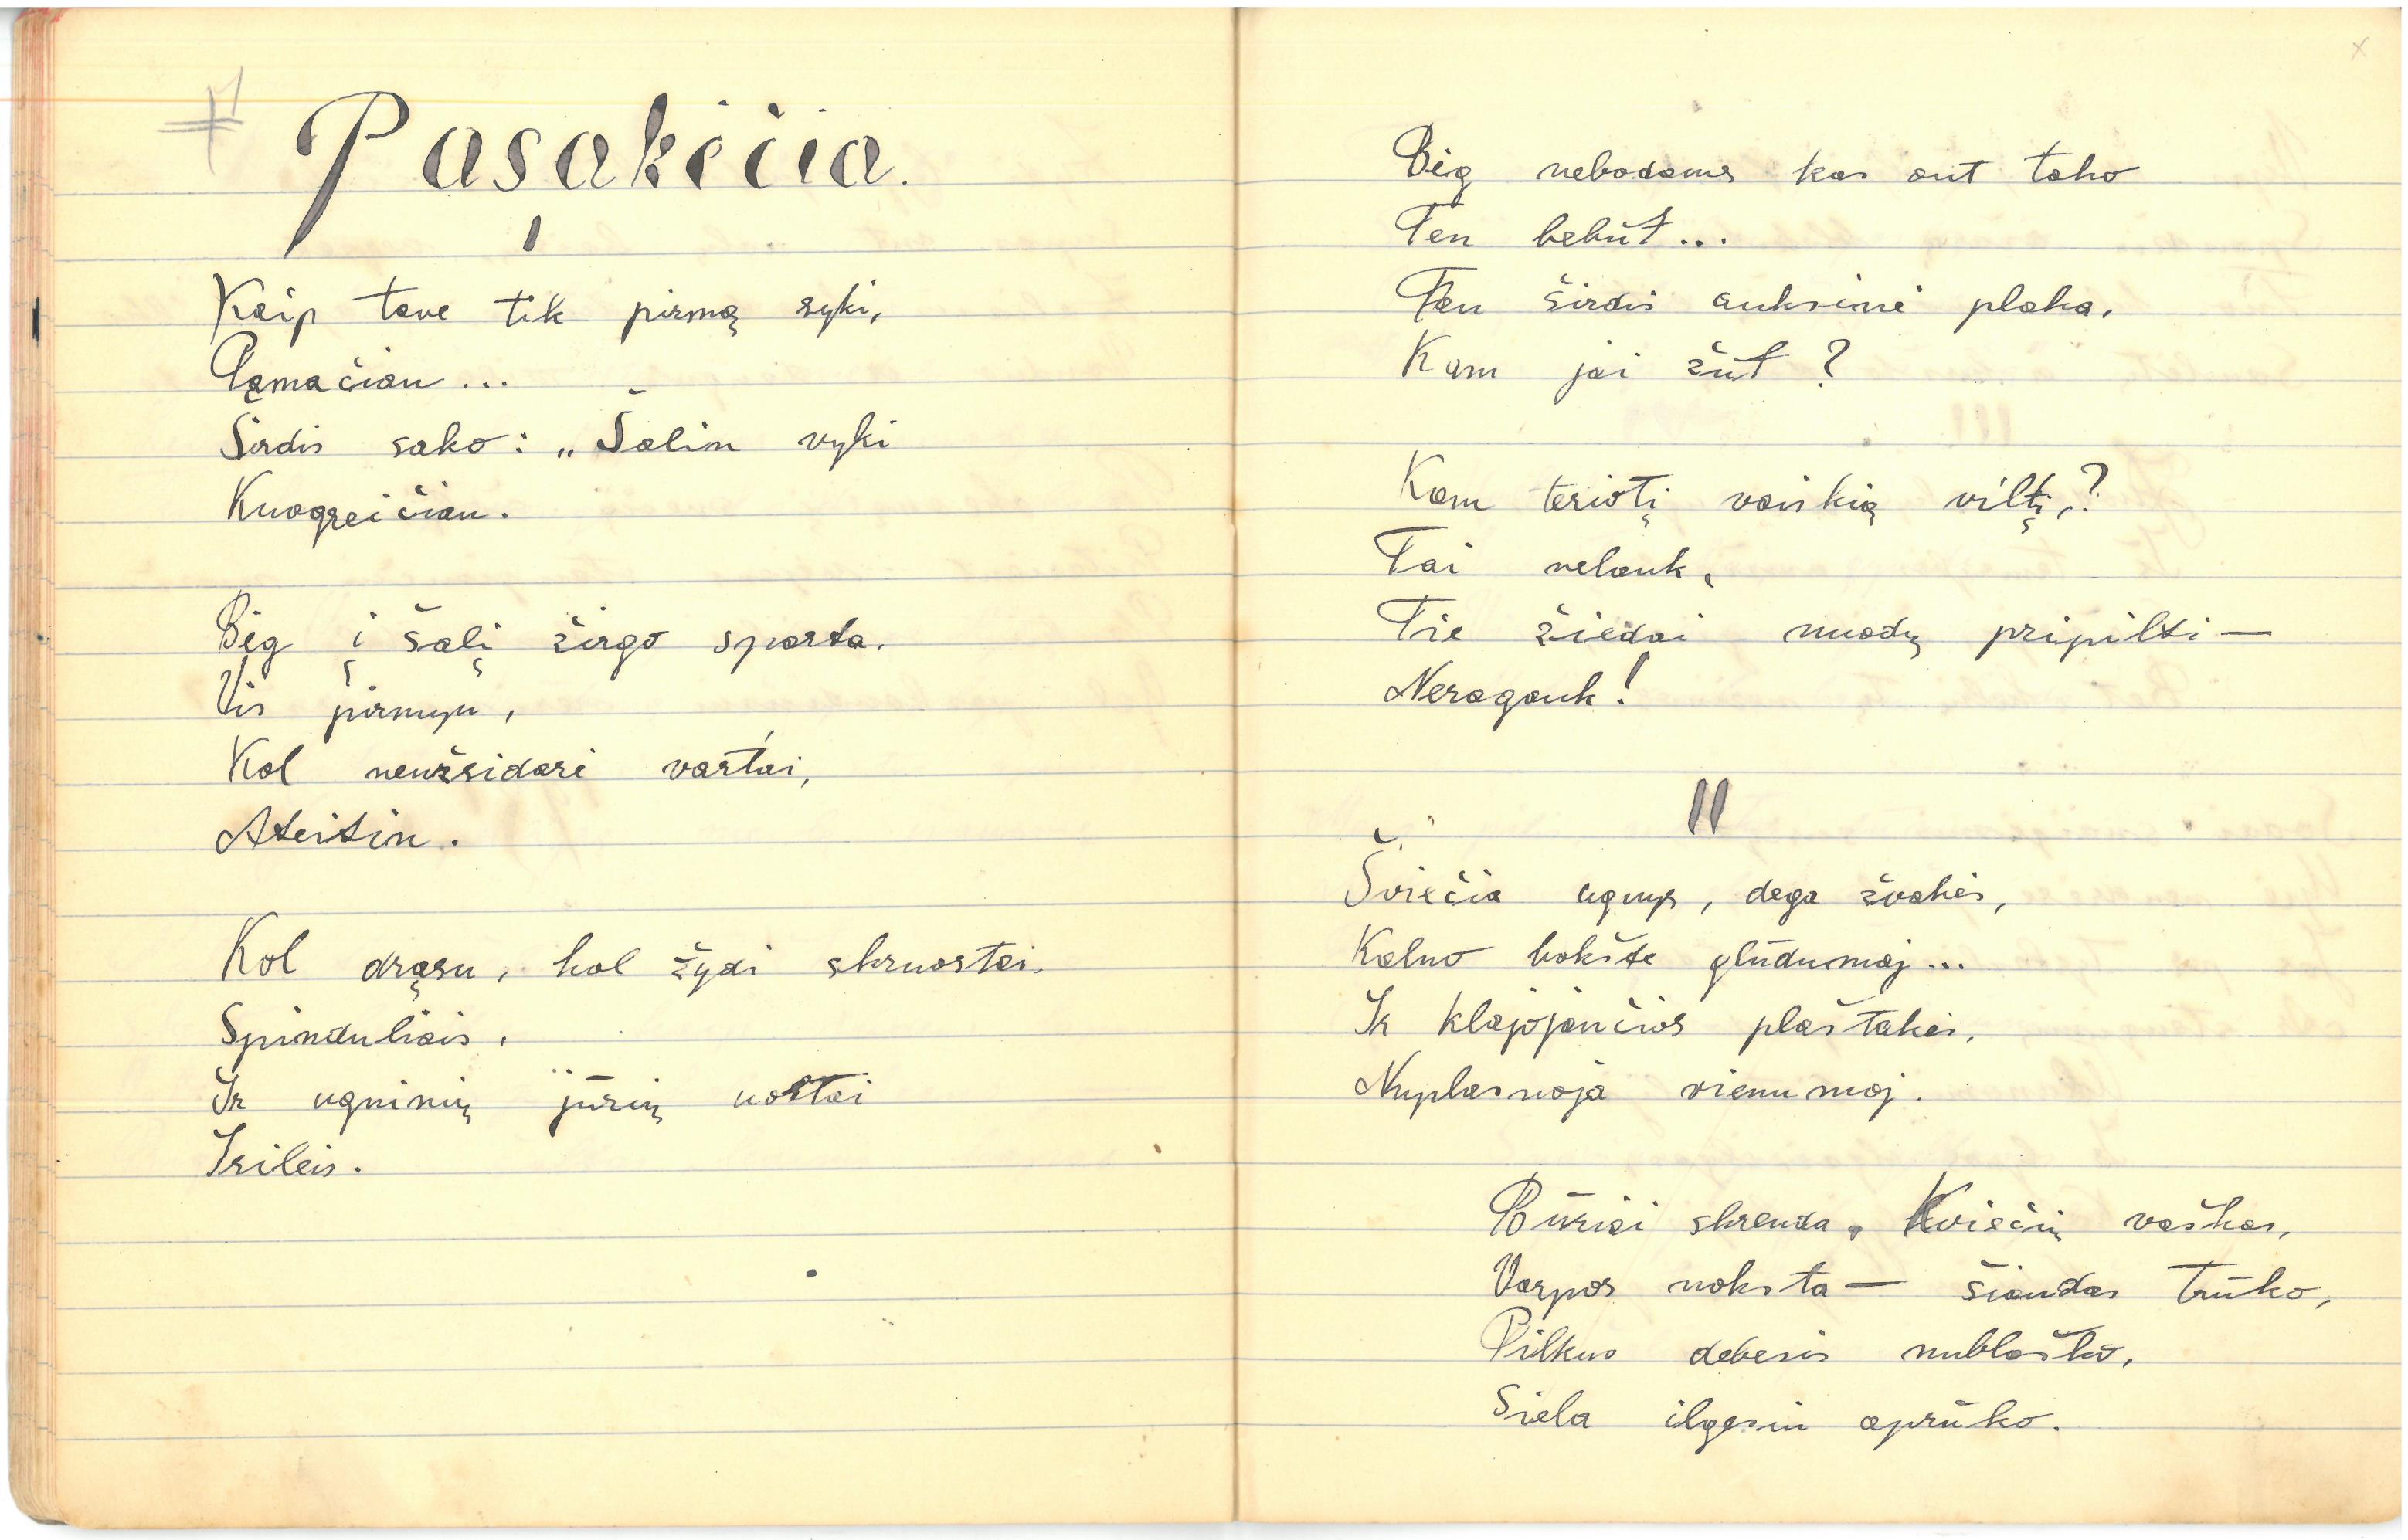 Pasakėčia.
I
Kaip tave tik pirmą sykį,
Pamačiau...
Širdis sako: „Šalin vyki
Kuogreičiau.
Bėg į šalį žirgo sparta.
Vis pirmyn,
Kol neužsidarė vartai,
Ateitin.
Kol drąsu, kol žydi skruostai.
Spinduliais,
Ir ugninių jūrių uostai
Įsileis.
Bėg nebodams kas ant tako
Ten bebūt...
Ten širdis auksinė plaka,
Kam jai žūt?
Kam teriotį vaiskią viltį,?
Tai nelauk,
Tie žiedai nuodų pripilti—
Neragauk!
II
Šviečia ugnys, dega žvakės,
Kalno bokšte glūdumoj...
Ir klajojančios plaštakės,
Nuplasnoja vienumoj.
Būriai skrenda. Kviečių vaškas,
Varpos noksta— šiaudas trūko,
Pilkus debesis nubloškė,
Siela ilgesiu aprūko.